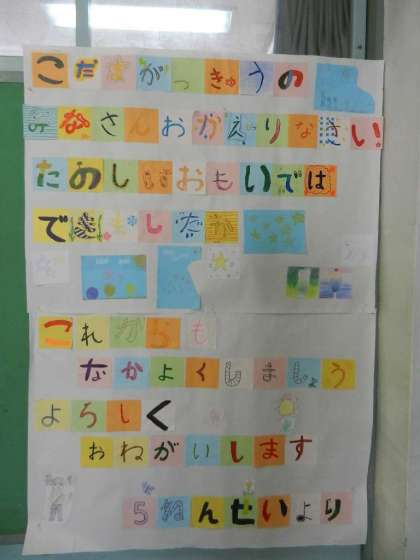 こだまがっきゅうの
みなさんおかえりなさい!
たのしいおもいでは
できましたか
これからも
なかよくしましょう
よろしく
おねがいします
5ねんせいより